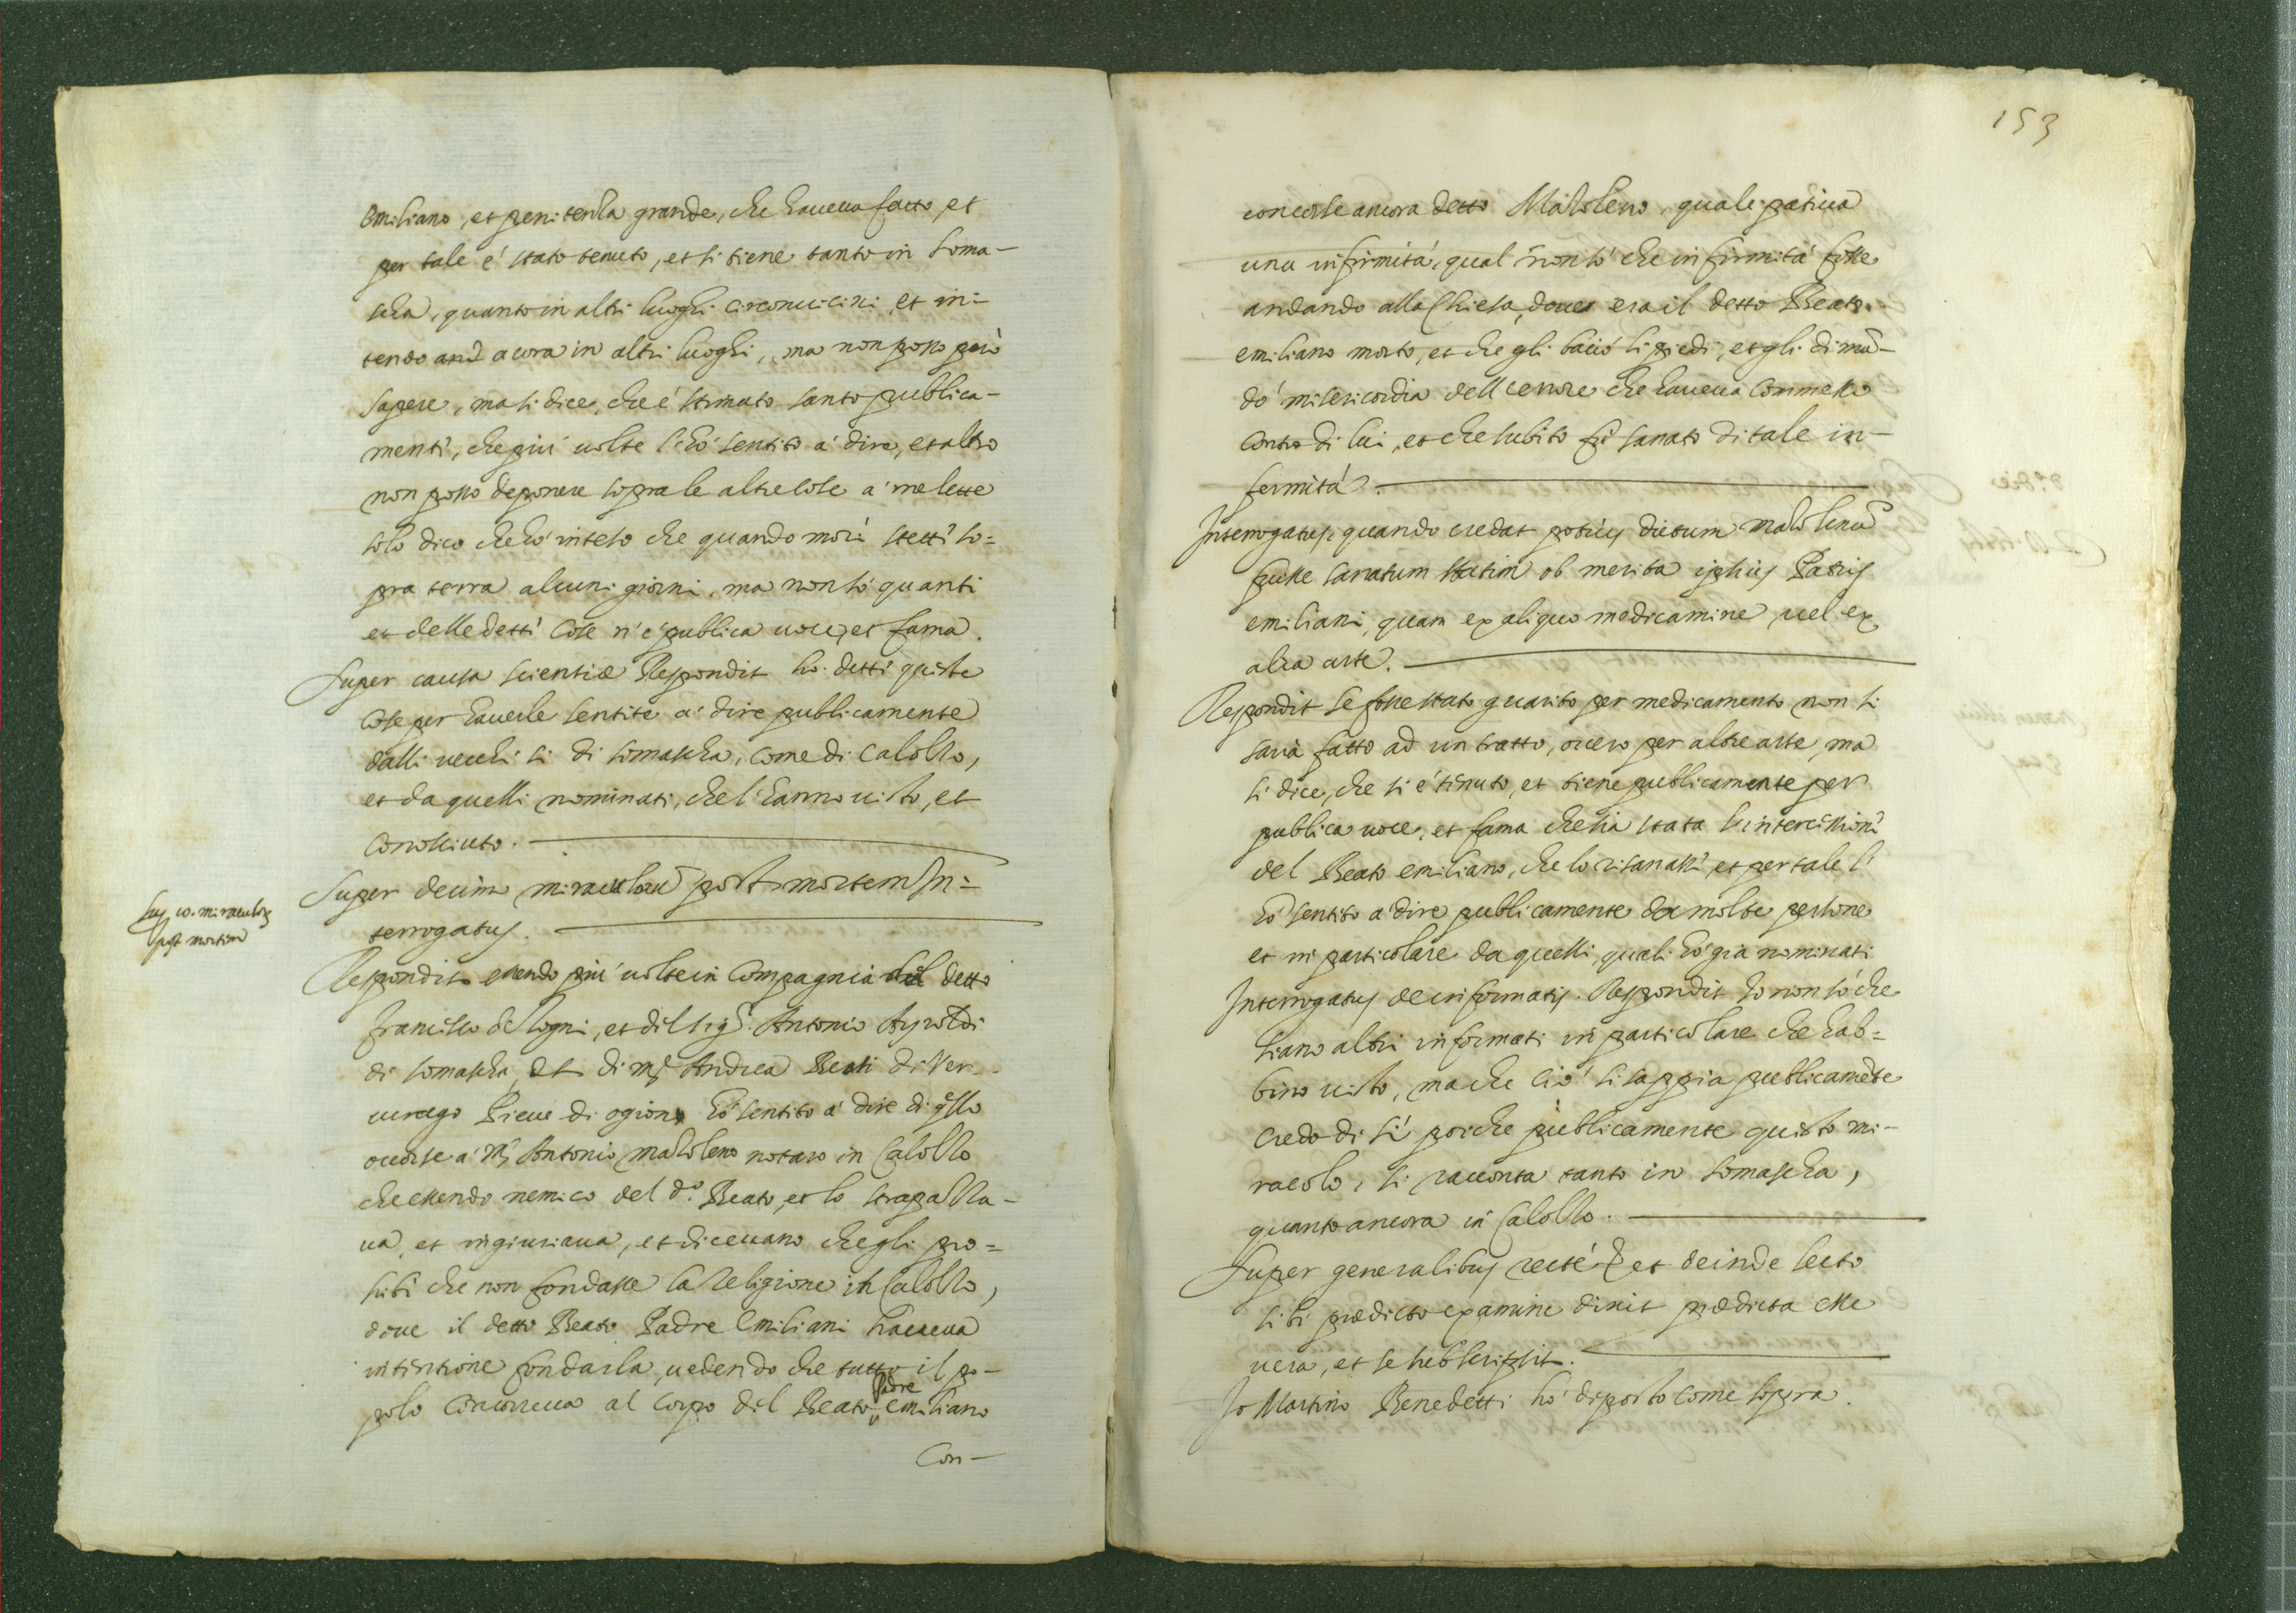 Emiliano, et penitenza grande, che haueua fatto, et
per tale é stato tenuto, et si tiene tanto in Soma-
scha, quanto in altri luoghi circonuicini, et in-
tendo anc acora in altri luoghi, ma non posso però
sapere, ma si dice, che é stimato santo publica-
menti, che più uolte l'hó sentito á dire, et altro
non posso deponere sopra le altre cose á me lette
solo dico che hó inteso che quando morì stetti so=
pra terra alcuni giorni, ma non só quanti
et delle detti cose n'é publica uoce, et fama.
Super causa scientiæ Respondit ho detti queste
cose per hauerle sentite á dire publicamente
dalli uecchi si di Somascha, come di Calolzo,
et da quelli nominati, che l'hanno uisto, et
conossiuto.
Super decimo miraculorũ post mortem In=
terrogatus.
Sup. 10. miraculorũ
post mortem
Respondit essendo più uolte in Compagnia del detto
francesco de Zogni, et dil sigr. Antonio Ayroldi
di Somascha, et di mr Andrea Beati di Ver-
urago Pieue di ogion hó sentito á dire di q̃sto
occorse á Mr Antonio Mazoleno notaro in Calolzo
che essendo nemico del do. Beato, et lo strapazza-
ua, et ingiuriaua, et diceuano che gli pro=
hibi che non fondasse la Religione in Calolzo,
doue il detto Beato Padre Emiliani haueua
intentione fondarla, uedendo che tutto il po-
polo Concorreua al Corpo dil Beato Padre emiliano
Con-
153
concorse ancora detto Mazoleno, quale patiua
una infirmitá, qual non só che infirmitá fosse
andando alla Chiesa, doue era il detto Beato
emiliano morto, et che gli bació li piedi, et gli dimã-
dó misericordia dell'errore che haueua Commesso
contro di lui, et che subito fu sanato di tale in-
fermitá.
Interrogatus, quando credat potius dictum Mazolenũ
fuisse sanatum statim ob merita ipsius Patris
emiliani, quam ex aliquo medicamine, uel ex
alia arte.
Respondit se fosse stato guarito per medicamento non si
saria fatto ad un tratto, ouero per altre arte, ma
si dice, che si é tenuto, et tiene publicamente per
publica uoce, et fama che sia stata l'intercissioni
del Beato emiliano, che lo risanassi, et per tale l'
hó sentito á dire publicamente da molte persone
et in particolare da quelli, quali hó gia nominati
Interrogatus de informatis. Respondit Io non só che
siano altri informati in particolare che hab=
bino uisto, ma che ció si sappia publicamẽte
credo di sí poiche publicamente questo mi-
racolo, si racconta tanto in Somascha,
quanto ancora in Calolzo.
Super generalibus recté et deinde lecto
sibi prædicto examine dixit prædicta esse
uera, et se subscripsit.
Io Martino Benedetti hó deposto come sopra.